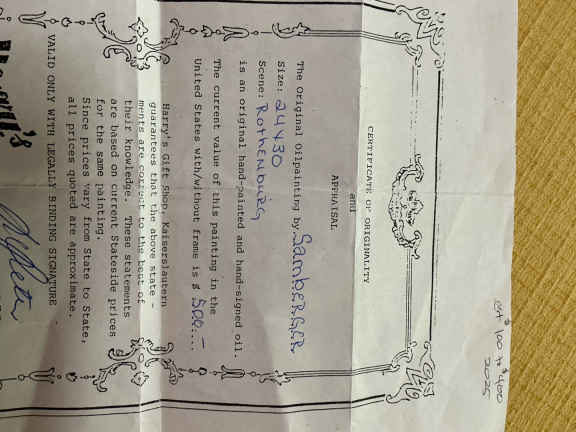 est $100 to $400
2025
CERTIFICATE OF ORIGINALITY
and
APPRAISAL
The Original Oilpainting by SambERGER
Size: 24x30
Scene: Rothenburg
is an original hand-painted and hand-signed oil.
The current value of this painting in the
United States with/without frame is $ 500.—
Harry's Gift Shop, Kaiserslautern
guarantees that the above state-
ments are correct to the best of
their knowledge. These statements
are based on current Stateside prices
for the same painting.
Since prices vary from State to State,
all prices quoted are approximate.
VALID ONLY WITH LEGALLY BINDING SIGNATURE